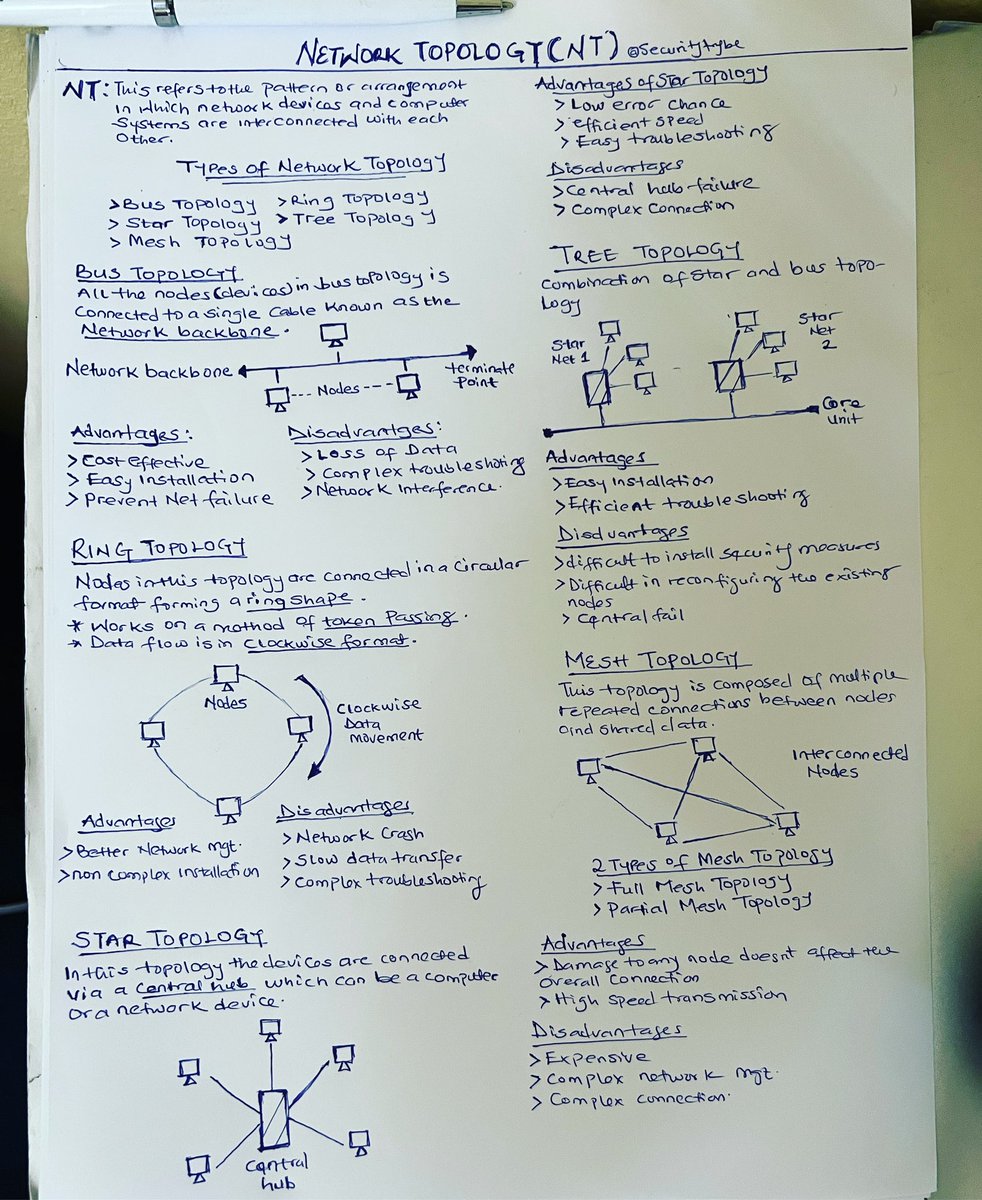 NETWORK TOPOLOGY (NT) @Securitytybe
NT: This refers to the pattern or arrangement
in which network devices and computer
Systems are interconnected with each
other.
Types of Network Topology
> Bus Topology > Ring Topology
> Star Topology > Tree Topology
> Mesh Topology
BUS TOPOLOGY
All the nodes (devices) in bus topology is
connected to a single cable known as the
Network backbone.
Network backbone
terminate
Point
Nodes
Advantages:
> Cost effective
> Easy Installation
> Prevent Net failure
Disadvantges:
> Loss of Data
> Complex troubleshoting
> Network Interference.
RING TOPOLOGY
Nodes in this topology are connected in a Circular
format forming a ring shape.
* Works on a method of token Passing.
* Data flow is in Clockwise format.
Nodes
Clockwise
Data
movement
Advantages
> Better Network mgt.
> non complex installation
Disadvantages
> Network Crash
> Slow data transfer
> Complex troubleshooting
STAR TOPOLOGY
In this topology the devices are connected
via a central hub which can be a computer
or a network device.
Central
hub
Advantages of Star Topology
> Low error chance
> efficient speed
> Easy troubleshooting
Disadvantages
> Central hub failure
> Complex Connection
TREE TOPOLOGY
Combination of Star and bus topo-
logy
Star
Net 1
Star
Net
2
Core
unit
Advantages
> Easy Installation
> Efficient troubleshooting
Disdvantages
> difficult to install security measures
> Difficult in reconfiguring the existing
nodes
> Central fail
MESH TOPOLOGY
This topology is composed of multiple
repeated connections between nodes
and shared data.
Interconnected
Nodes
2 Types of Mesh Topology
> Full Mesh Topology
> Partial Mesh Topology
Advantages
> Damage to any node doesn't affect the
overall connection
> High speed transmission
Disadvantages
> Expensive
> Complex network mgt.
> Complex connection.